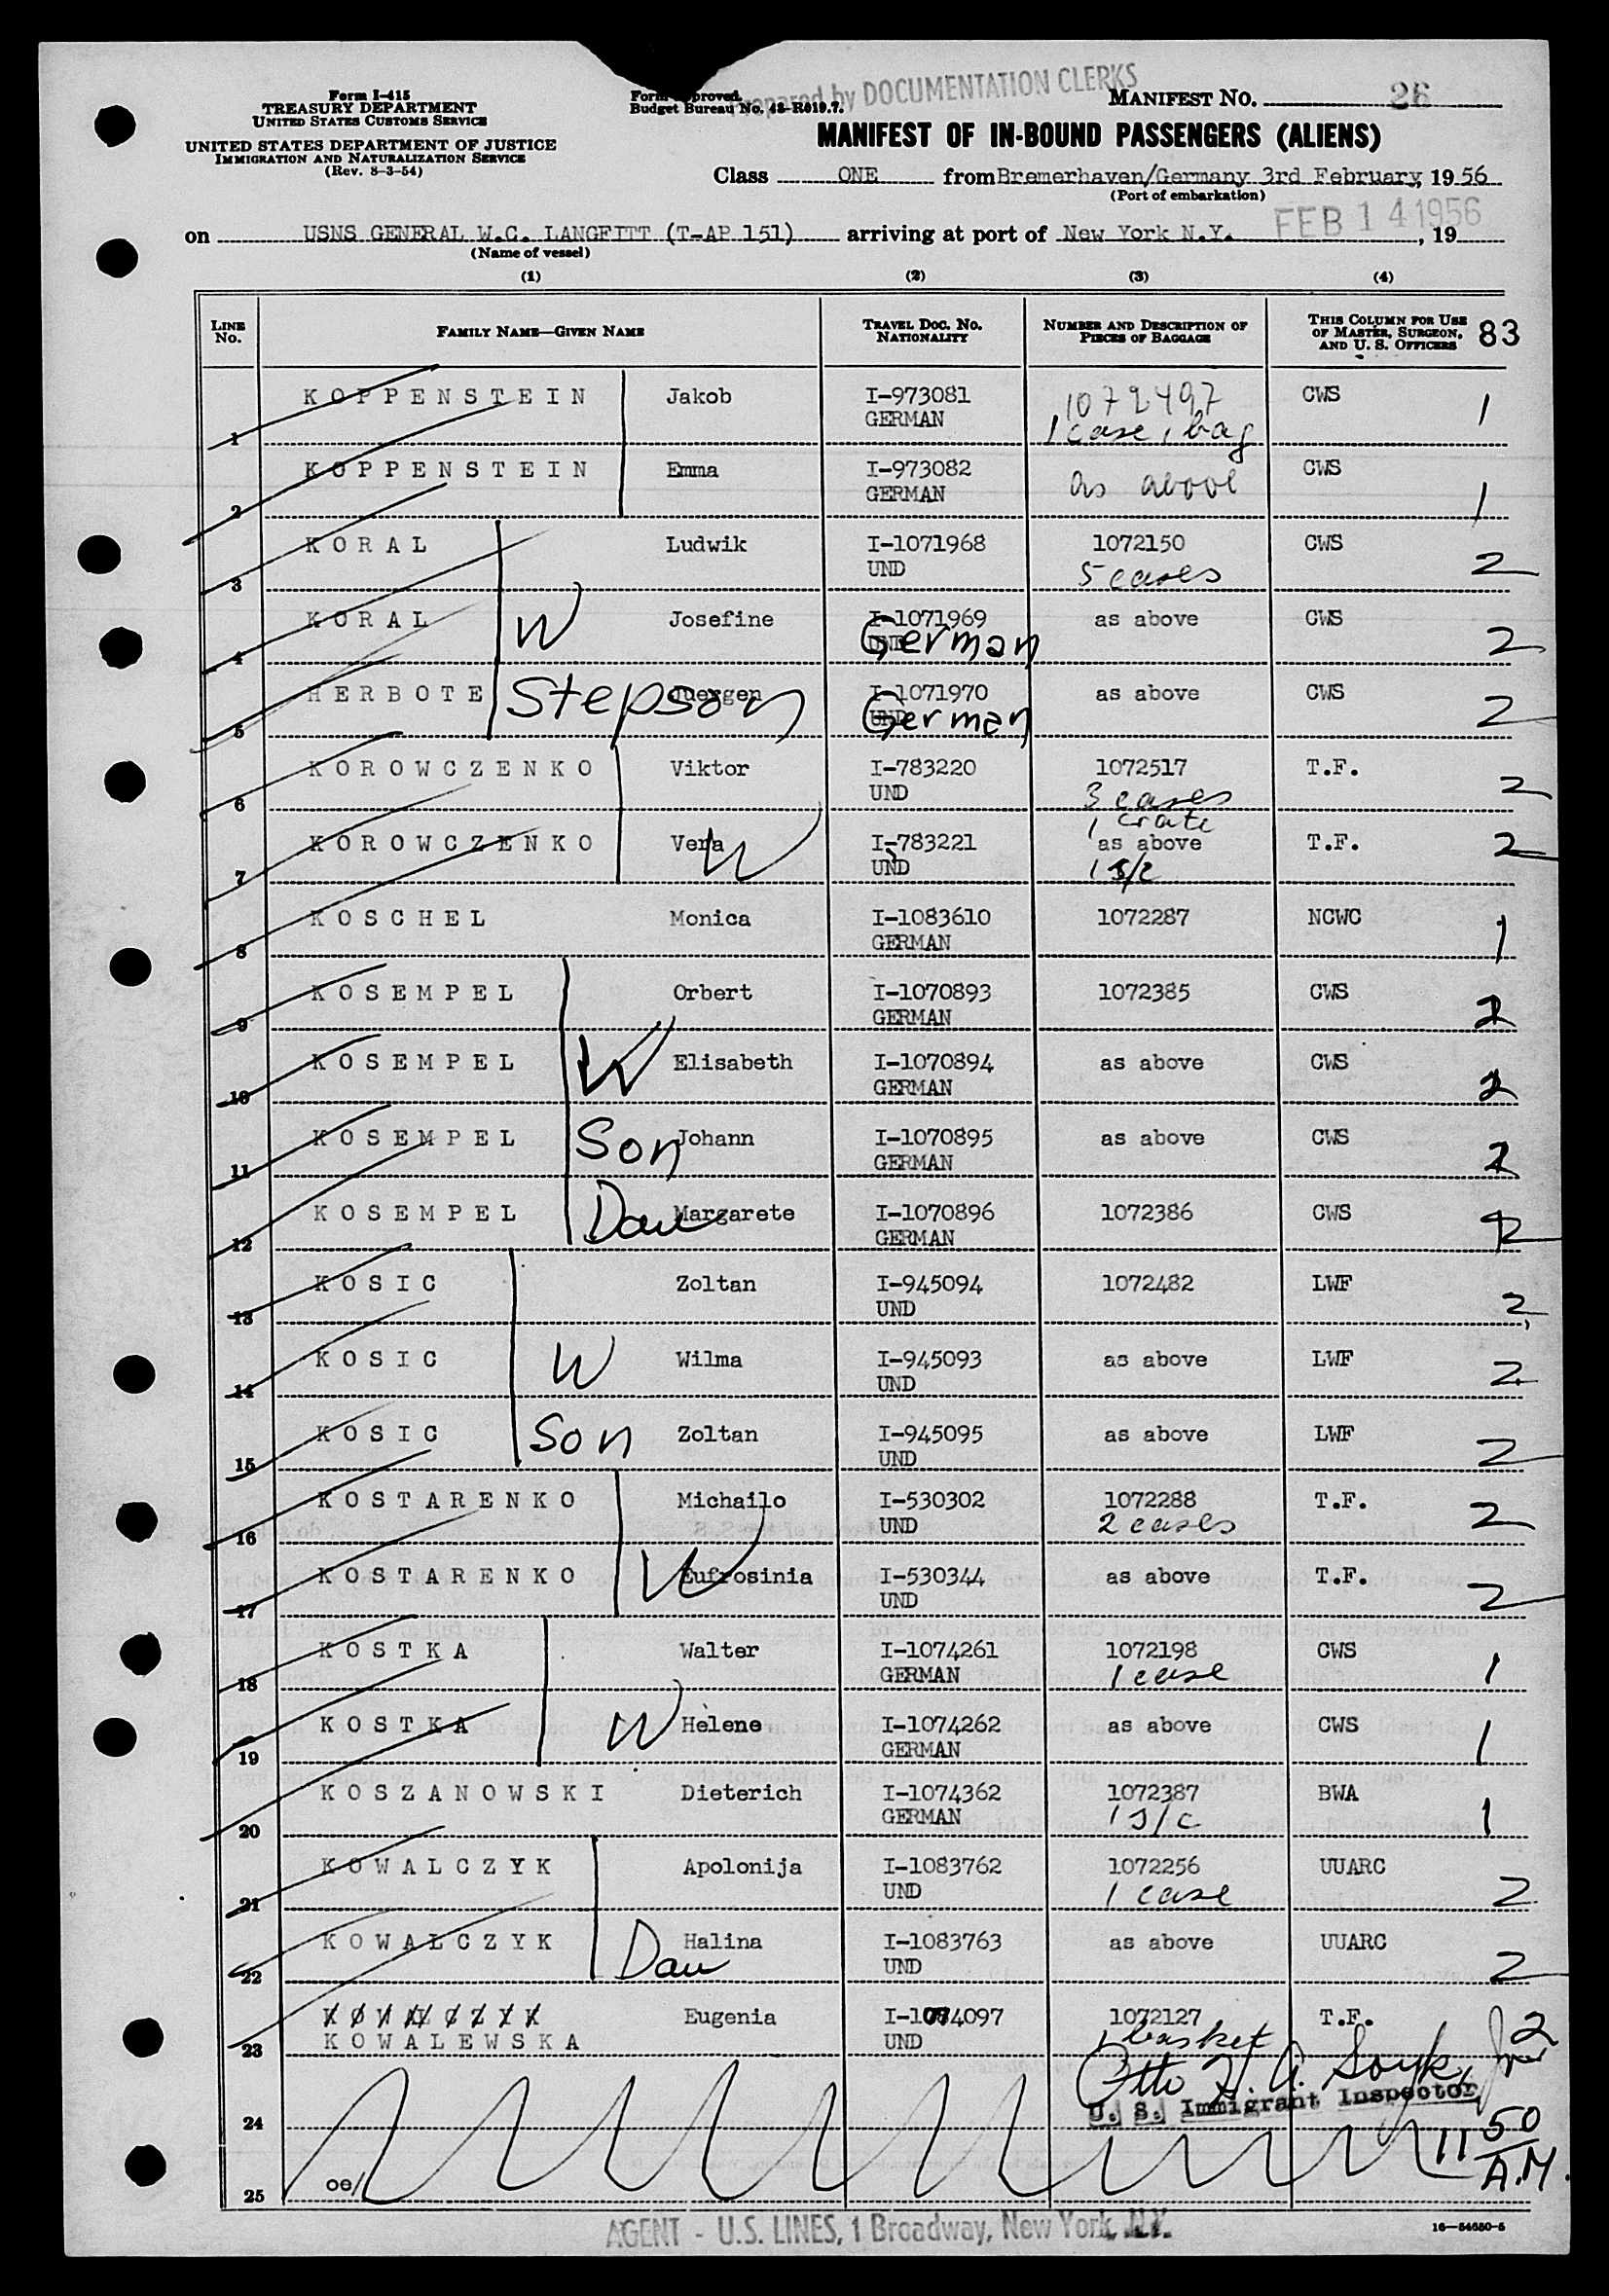 Form I-415
TREASURY DEPARTMENT
UNITED STATES CUSTOMS SERVICE
UNITED STATES DEPARTMENT OF JUSTICE
IMMIGRATION AND NATURALIZATION SERVICE
(Rev. 8-3-54)
Form approved.
Budget Bureau No. 43-R019.7.
by DOCUMENTATION CLERKS
MANIFEST NO. 26
MANIFEST OF IN-BOUND PASSENGERS (ALIENS)
Class ONE from Bremerhaven/Germany 3rd February, 1956
(Port of embarkation)
on USNS GENERAL W.C. LANGFITT (T-AP 151) arriving at port of New York N.Y. FEB 14 1956, 19
(Name of vessel)
(1) (2) (3) (4)
LINE No. FAMILY NAME—GIVEN NAME TRAVEL DOC. NO. NATIONALITY NUMBER AND DESCRIPTION OF PIECES OF BAGGAGE THIS COLUMN FOR USE OF MASTER, SURGEON, AND U. S. OFFICERS 83
1 KOPPENSTEIN Jakob I-973081 1072497 CWS 1
GERMAN 1 case, bag
2 KOPPENSTEIN Emma I-973082 as above CWS 1
GERMAN
3 KORAL Ludwik I-1071968 1072150 CWS 2
UND 5 cases
4 KORAL W Josefine I-1071969 as above CWS 2
UND German
5 HERBOTE Stepson Juergen I-1071970 as above CWS 2
UND German
6 KOROWCZENKO Viktor I-783220 1072517 T.F. 2
UND 3 cases
1 crate
7 KOROWCZENKO Vera W I-783221 as above T.F. 2
UND 1 s/c
8 KOSCHEL Monica I-1083610 1072287 NCWC 1
GERMAN
9 KOSEMPEL Orbert I-1070893 1072385 CWS 2
GERMAN
10 KOSEMPEL W Elisabeth I-1070894 as above CWS 2
GERMAN
11 KOSEMPEL Son Johann I-1070895 as above CWS 2
GERMAN
12 KOSEMPEL Dau Margarete I-1070896 1072386 CWS 2
GERMAN
13 KOSIC Zoltan I-945094 1072482 LWF 2
UND
14 KOSIC W Wilma I-945093 as above LWF 2
UND
15 KOSIC Son Zoltan I-945095 as above LWF 2
UND
16 KOSTARENKO Michailo I-530302 1072288 T.F. 2
UND 2 cases
17 KOSTARENKO W Eufrosinia I-530344 as above T.F. 2
UND
18 KOSTKA Walter I-1074261 1072198 CWS 1
GERMAN 1 case
19 KOSTKA W Helene I-1074262 as above CWS 1
GERMAN
20 KOSZANOWSKI Dieterich I-1074362 1072387 BWA 1
GERMAN 1 s/c
21 KOWALCZYK Apolonija I-1083762 1072256 UUARC 2
UND 1 case
22 KOWALCZYK Dau Halina I-1083763 as above UUARC 2
UND
23 KOWALCZYK Eugenia I-1074097 1072127 T.F. 2
KOWALEWSKA UND 1 basket
Otto H. A.
U. S. Immigrant Inspector
24
11 50 A.M.
25 oe/
AGENT - U.S. LINES, 1 Broadway, New York, N.Y.
16—54650-5